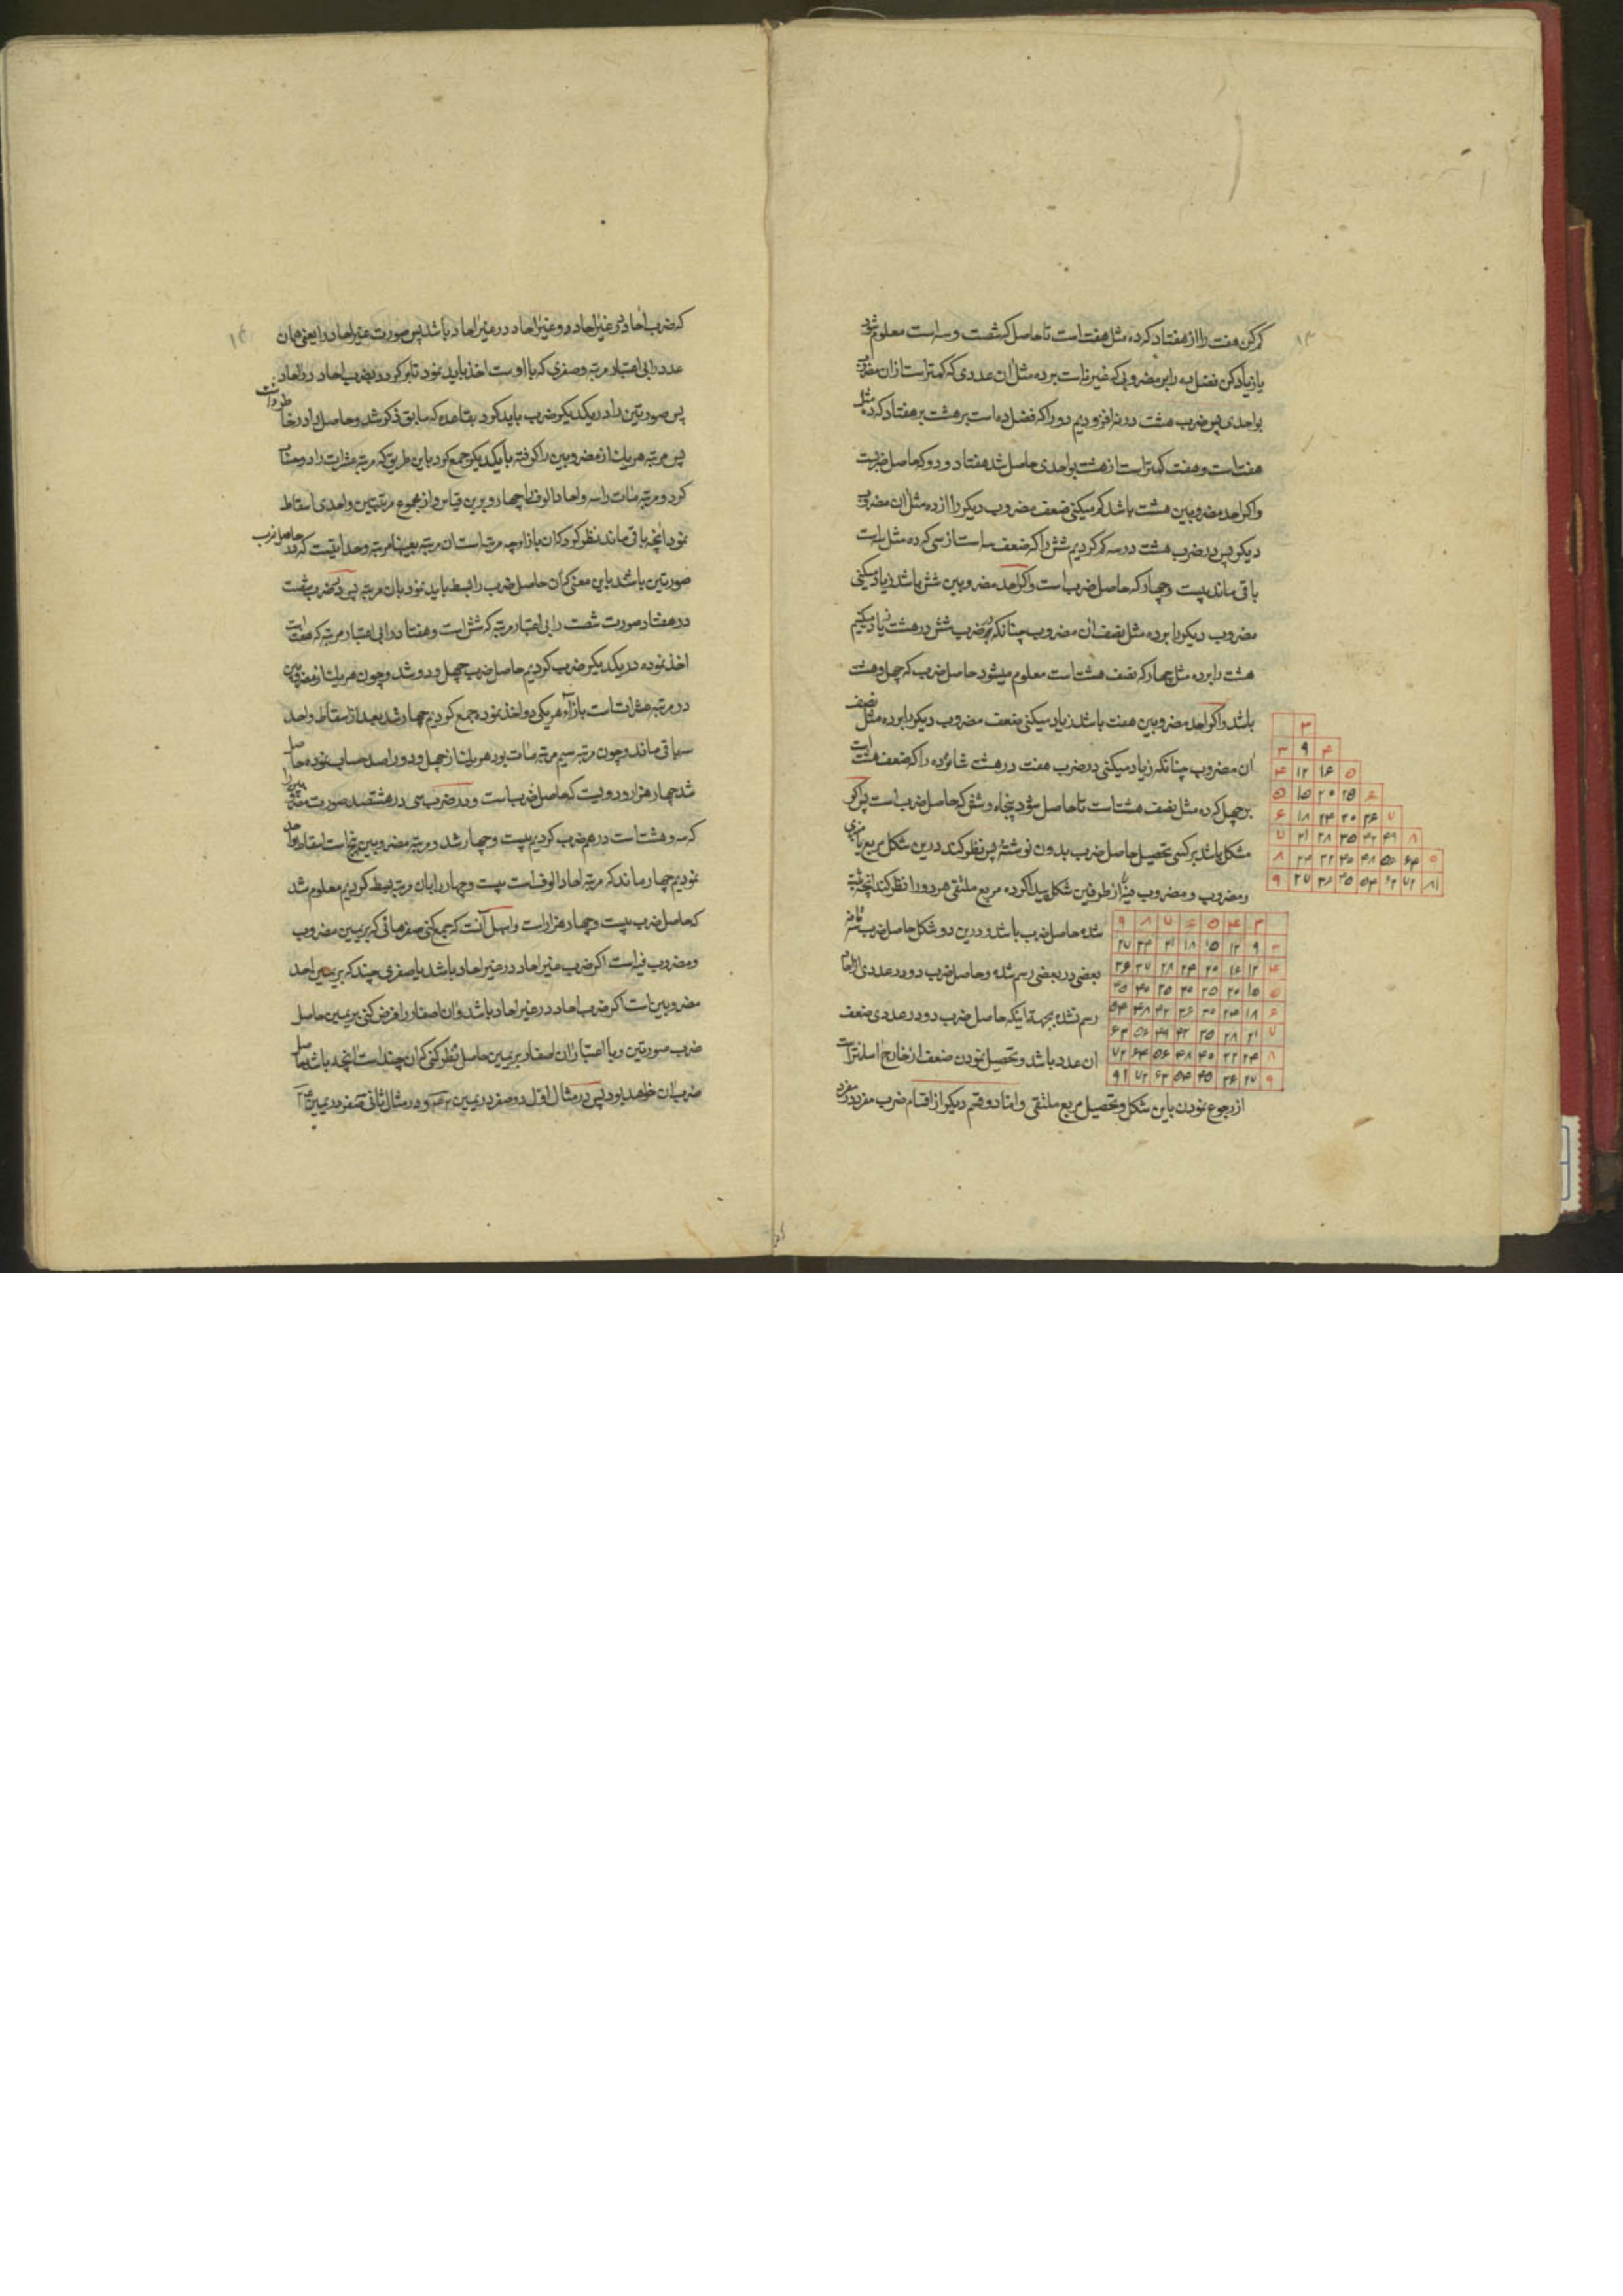 کم کن هفت را از هفتاد که ده مثل هفت است تا حاصل که شصت و سه است معلوم شود
یا زیاد کن فضل ده را بر مضروبی که غیر نه است بر ده مثل ان عددی که کمتر است از ان مضروب
بواحدی پس در ضرب هشت در نه افزودیم دو را که فضل ده است بر هشت بر هفتاد که ده مثل
هفت است و هفت کمتر است از هشت بواحدی حاصل شد هفتاد و دو که حاصل ضربست
و اکر احد مضروبین هشت باشد کم میکنی ضعف مضروب دیکر را از ده مثل ان مضروب
دیکر پس در ضرب هشت در سه کم کردیم شش را که ضعف سه است از سی که ده مثل سه است
باقی ماند بیست و چهار که حاصل ضرب است و اکر احد مضروبین شش باشد زیاد میکنی
مضروب دیکر را بر ده مثل نصف ان مضروب چنانکه در ضرب شش در هشت زیاد میکنیم
هشت را بر ده مثل چهار که نصف هشت است معلوم میشود حاصل ضرب که چهل و هشت
باشد و اکر احد مضروبین هفت باشد زیاد میکنی ضعف مضروب دیکر را بر ده مثل نصف
ان مضروب چنانکه زیاد میکنی در ضرب هفت در هشت شانزده را که ضعف هشت است
بر چهل که ده مثل نصف هشت است تا حاصل شود پنجاه و شش که حاصل ضرب است پس اکر
مشکل باشد بر کسی تحصیل حاصل ضرب بدون نوشته پس نظر کند درین شکل مربع یا
و مضروب و مضروب فیه را از طرفین شکل پیدا کرده مربع ملتقی هر دو را نظر کند انچه ثبت
شده حاصل ضرب باشد و درین دو شکل حاصل ضرب
بعضی در بعضی رسم شده و حاصل ضرب دو در عددی از احاد
رسم نشده بجهة اینکه حاصل ضرب دو در عددی ضعف
ان عدد باشد و تحصیل نمودن ضعف از خارج اسهلتر است
از رجوع نمودن باین شکل و تحصیل مربع ملتقی و اما دو قسم دیکر از اقسام ضرب مفرد در مفرد
۳
۳ ۹ ۴
۴ ۱۲ ۱۶ ۵
۵ ۱۵ ۲۰ ۲۵ ۶
۶ ۱۸ ۲۴ ۳۰ ۳۶ ۷
۷ ۲۱ ۲۸ ۳۵ ۴۲ ۴۹ ۸
۸ ۲۴ ۳۲ ۴۰ ۴۸ ۵۶ ۶۴ ۹
۹ ۲۷ ۳۶ ۴۵ ۵۴ ۶۳ ۷۲ ۸۱
۹ ۸ ۷ ۶ ۵ ۴ ۳
۲۷ ۲۴ ۲۱ ۱۸ ۱۵ ۱۲ ۹ ۳
۳۶ ۳۲ ۲۸ ۲۴ ۲۰ ۱۶ ۱۲ ۴
۴۵ ۴۰ ۳۵ ۳۰ ۲۵ ۲۰ ۱۵ ۵
۵۴ ۴۸ ۴۲ ۳۶ ۳۰ ۲۴ ۱۸ ۶
۶۳ ۵۶ ۴۹ ۴۲ ۳۵ ۲۸ ۲۱ ۷
۷۲ ۶۴ ۵۶ ۴۸ ۴۰ ۳۲ ۲۴ ۸
۹۱ ۷۲ ۶۳ ۵۴ ۴۵ ۳۶ ۲۷ ۹
که ضرب احاد در غیر احاد و غیر احاد در غیر احاد باشد پس صورت غیر احاد را یعنی همان
عدد را بی اعتبار مرتبه و صفری که با اوست اخذ باید نمود تا بر کردد بضرب احاد در احاد
پس صورتین را در یکدیکر ضرب باید کرد بقاعده که سابق ذکر شد و حاصل را در خاطر داشت
پس مرتبه هر یک از مضروبین را کرفته با یکدیکر جمع کرد باین طریق که مرتبه عشرات را دو حساب
کرد و مرتبه مئات را سه و احاد الوف را چهار و برین قیاس و از مجموع مرتبتین واحدی اسقاط
نمود انچه باقی ماند نظر کرد که ان بازاء چه مرتبه است ان مرتبه بعینها مرتبه وحدانیتست که حاصل ضرب
صورتین باشد باین معنی که ان حاصل ضرب را بسط باید نمود بان مرتبه پس در ضرب شصت
در هفتاد صورت شصت را بی اعتبار مرتبه که شش است و هفتاد را بی اعتبار مرتبه که هفت است
اخذ نموده در یکدیکر ضرب کردیم حاصل ضرب چهل و دو شد و چون هر یک از مضروبین
در مرتبه عشرات است بازاء هر یکی دو اخذ نموده جمع کردیم چهار شد بعد از اسقاط واحد
سه باقی ماند و چون مرتبه سیم مرتبه مئات بود هر یک از چهل و دو را صد حساب نموده حاصل
شد چهار هزار و دویست که حاصل ضربست و در ضرب سی در هشتصد صورت مضروبین را
که سه و هشت است در هم ضرب کردیم بیست و چهار شد و مرتبه مضروبین پنج است اسقاط واحد
نمودیم چهار ماند که مرتبه احاد الوف است بیست و چهار را بان مرتبه بسط کردیم معلوم شد
که حاصل ضرب بیست و چهار هزار است و اسهل آنست که جمع کنی صفرهائی که بر یمین مضروب
و مضروب فیه است اکر ضرب غیر احاد در غیر احاد باشد یا صفری چند که بر یمین احد
مضروبین است اکر ضرب احاد در غیر احاد باشد و ان اصفار را فرض کنی بر یمین حاصل
ضرب صورتین و با اعتبار ان اصفار بر یمین حاصل نظر کنی که ان چند است انچه باشد حاصل
ضرب ان خواهد بود پس در مثال اول دو صفر در یمین ۴۲ و در مثال ثانی سه صفر در یمین ۲۴